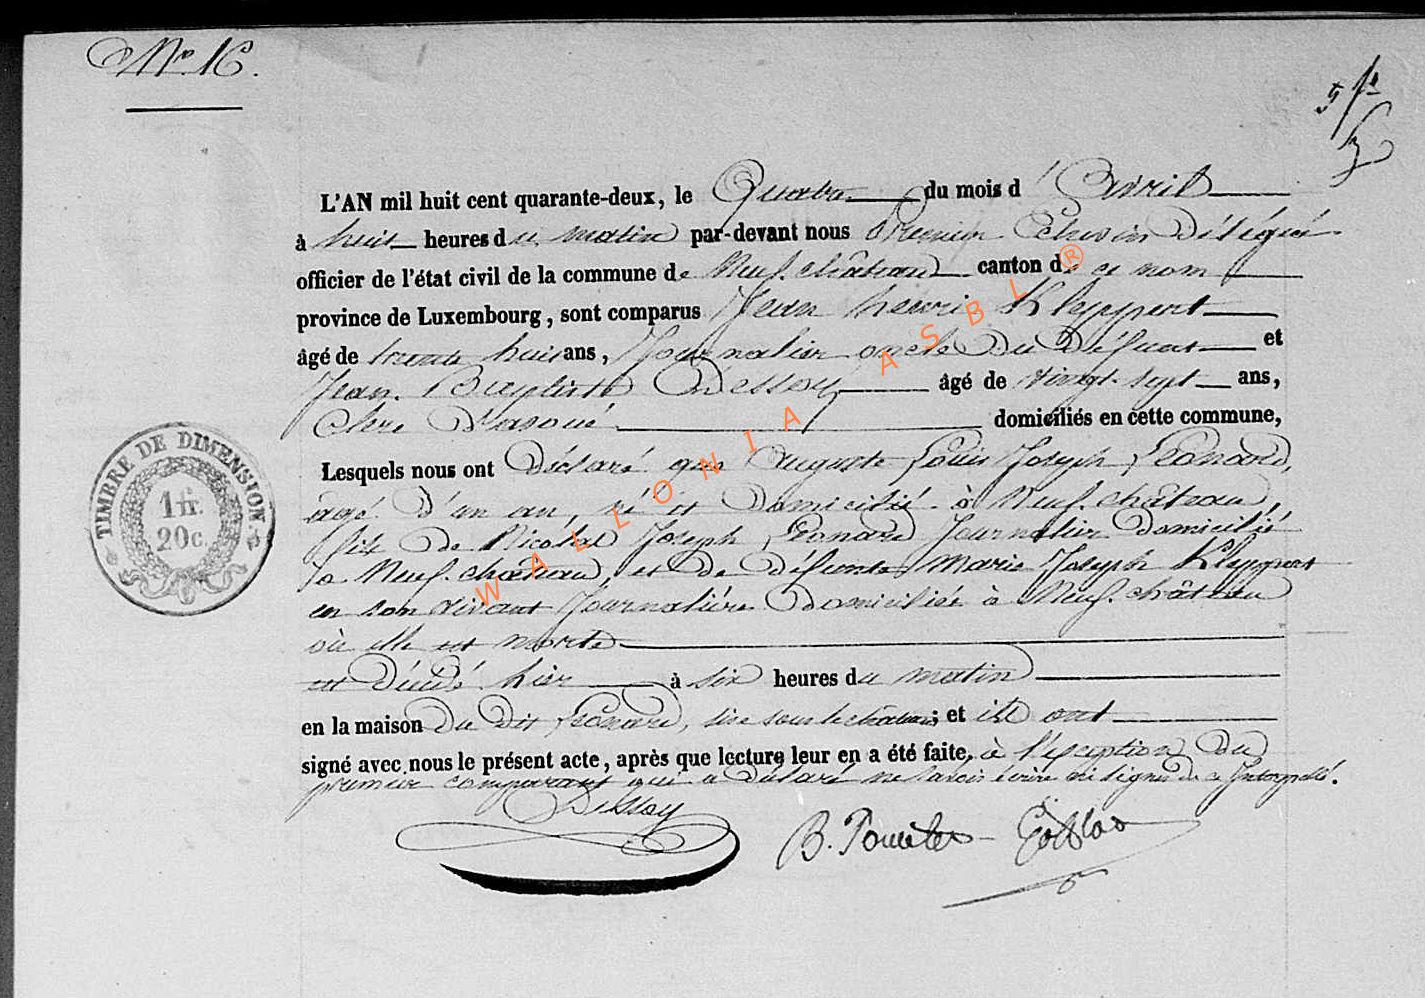 No. 16.
5 fs
L'AN mil huit cent quarante-deux, le Quatre du mois d'Avril
à huit heures du matin par-devant nous Premier Echevin Délégué
officier de l'état civil de la commune de Neufchâteau canton de ce nom
province de Luxembourg, sont comparus Jean henri Kleppert
âgé de trente huit ans, Journalier oncle du Défunt et
Jean Baptiste Dessoy âgé de vingt-sept ans,
Clerc d'avoué domiciliés en cette commune,
Lesquels nous ont Déclaré que Auguste Louis Joseph Léonard,
âgé d'un an, né et Domicilié à Neufchâteau,
fils de Nicolas Joseph Léonard Journalier domicilié
à Neufchâteau, et de défunte Marie Joseph Kleppert
en son vivant Journalière Domiciliée à Neufchâteau
où elle est morte
est Décédé hier à six heures du matin
en la maison du dit Léonard, sise sous le château; et ils ont
signé avec nous le présent acte, après que lecture leur en a été faite, à l'exception du
premier comparant qui a déclaré ne savoir écrire ni signer de ce Interpellé.
Dessoy
B. Poncelet-Gofflot
TIMBRE DE DIMENSION.
1 fr.
20 c.
WALLONIA ASBL ®